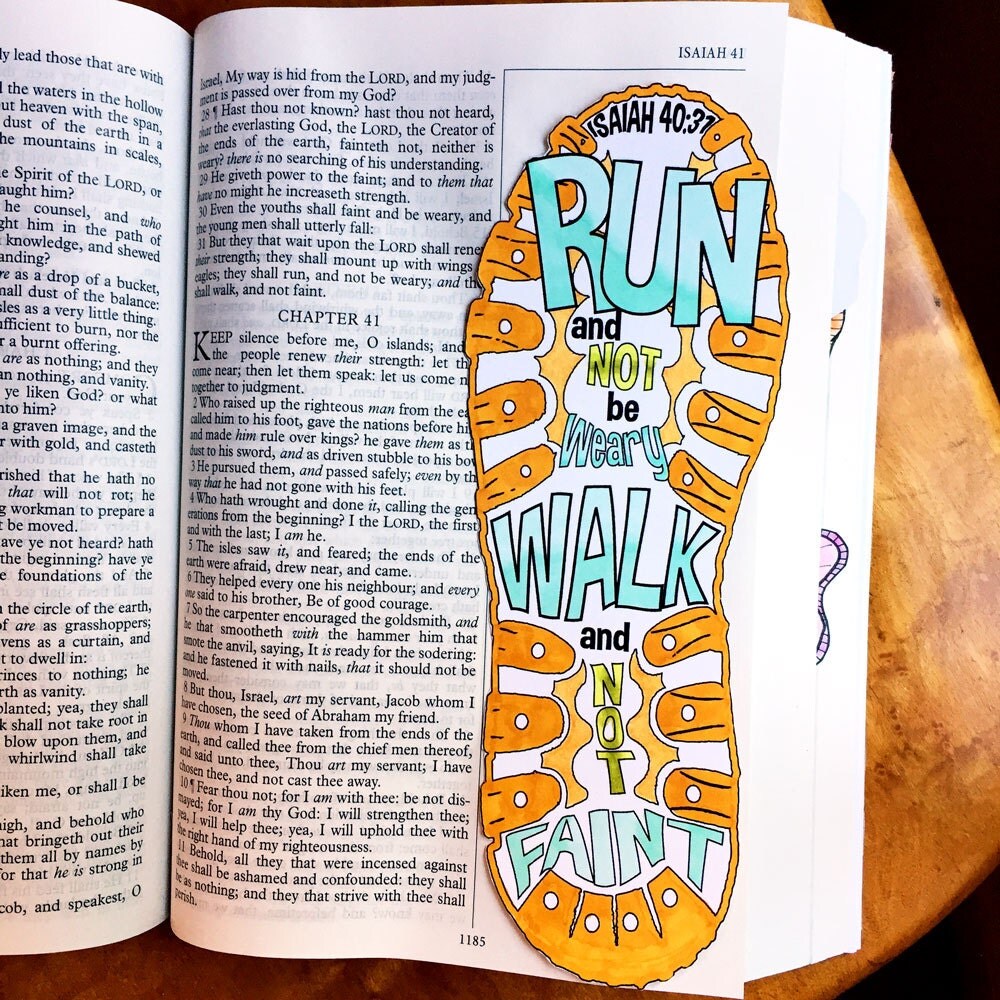 ly lead those that are with
the waters in the hollow
out heaven with the span,
dust of the earth in a
he mountains in scales,
Spirit of the LORD, or
aught him?
he counsel, and who
ght him in the path of
knowledge, and shewed
anding?
are as a drop of a bucket,
small dust of the balance:
sles as a very little thing.
ufficient to burn, nor the
r a burnt offering.
are as nothing; and they
an nothing, and vanity.
ye liken God? or what
nto him?
a graven image, and the
r with gold, and casteth
rished that he hath no
that will not rot; he
g workman to prepare a
t be moved.
ave ye not heard? hath
the beginning? have ye
e foundations of the
n the circle of the earth,
of are as grasshoppers;
vens as a curtain, and
t to dwell in:
rinces to nothing; he
rth as vanity.
planted; yea, they shall
k shall not take root in
blow upon them, and
whirlwind shall take
liken me, or shall I be
high, and behold who
hat bringeth out their
them all by names by
for that he is strong in
cob, and speakest, O
ISAIAH 41
Israel, My way is hid from the LORD, and my judg-
ment is passed over from my God?
28 ¶ Hast thou not known? hast thou not heard,
that the everlasting God, the LORD, the Creator of
the ends of the earth, fainteth not, neither is
weary? there is no searching of his understanding.
29 He giveth power to the faint; and to them that
have no might he increaseth strength.
30 Even the youths shall faint and be weary, and
the young men shall utterly fall:
31 But they that wait upon the LORD shall rene
their strength; they shall mount up with wings
eagles; they shall run, and not be weary; and th
shall walk, and not faint.
CHAPTER 41
KEEP silence before me, O islands; and
the people renew their strength: let th
come near; then let them speak: let us come n
together to judgment.
2 Who raised up the righteous man from the ea
called him to his foot, gave the nations before hi
and made him rule over kings? he gave them as th
dust to his sword, and as driven stubble to his bow
3 He pursued them, and passed safely; even by th
way that he had not gone with his feet.
4 Who hath wrought and done it, calling the gen
erations from the beginning? I the LORD, the first
and with the last; I am he.
5 The isles saw it, and feared; the ends of the
earth were afraid, drew near, and came.
6 They helped every one his neighbour; and every
one said to his brother, Be of good courage.
7 So the carpenter encouraged the goldsmith, and
he that smootheth with the hammer him that
smote the anvil, saying, It is ready for the sodering:
and he fastened it with nails, that it should not be
moved.
8 But thou, Israel, art my servant, Jacob whom I
have chosen, the seed of Abraham my friend.
9 Thou whom I have taken from the ends of the
earth, and called thee from the chief men thereof,
and said unto thee, Thou art my servant; I have
chosen thee, and not cast thee away.
10 ¶ Fear thou not; for I am with thee: be not dis-
mayed; for I am thy God: I will strengthen thee;
yea, I will help thee; yea, I will uphold thee with
the right hand of my righteousness.
11 Behold, all they that were incensed against
thee shall be ashamed and confounded: they shall
be as nothing; and they that strive with thee shall
perish.
1185
ISAIAH 40:31
RUN
and
NOT
be
weary
WALK
and
NOT
FAINT